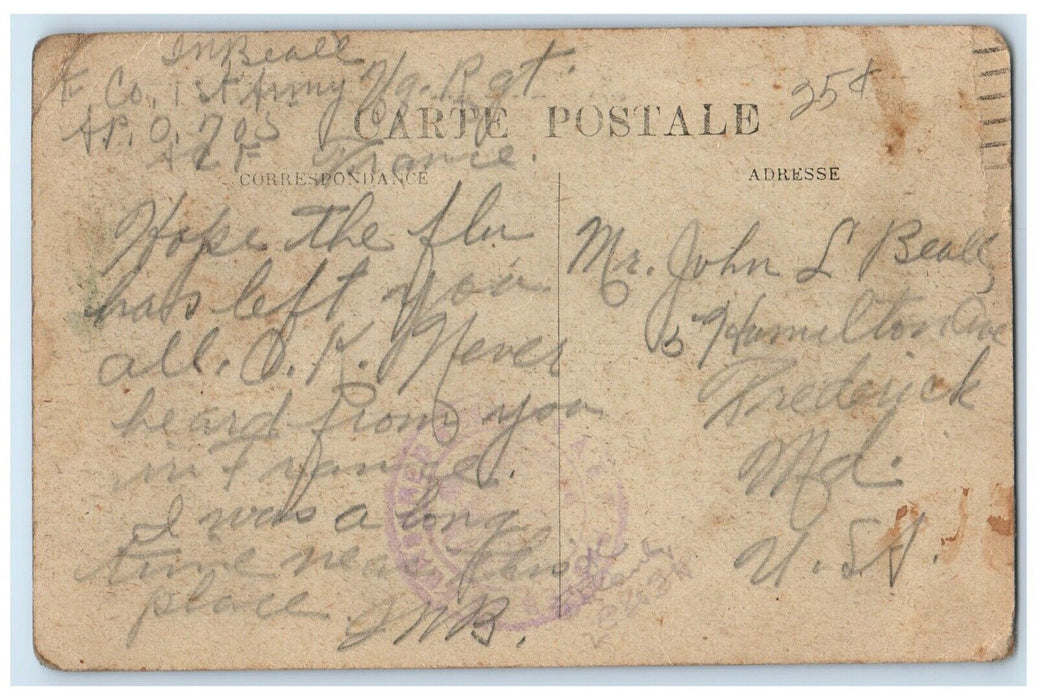 JNBeall
F Co. 1st Army Hq. Rgt.
A.P.O. 703
A E F France.
CARTE POSTALE
25¢
CORRESPONDANCE
ADRESSE
Hope the flu
has left you
all. O. K. Never
heard from you
in France.
I was a long
time near this
place. JNB.
Mr. John L Beall
5 Hamilton Ave
Frederick
Md.
U.S.A.